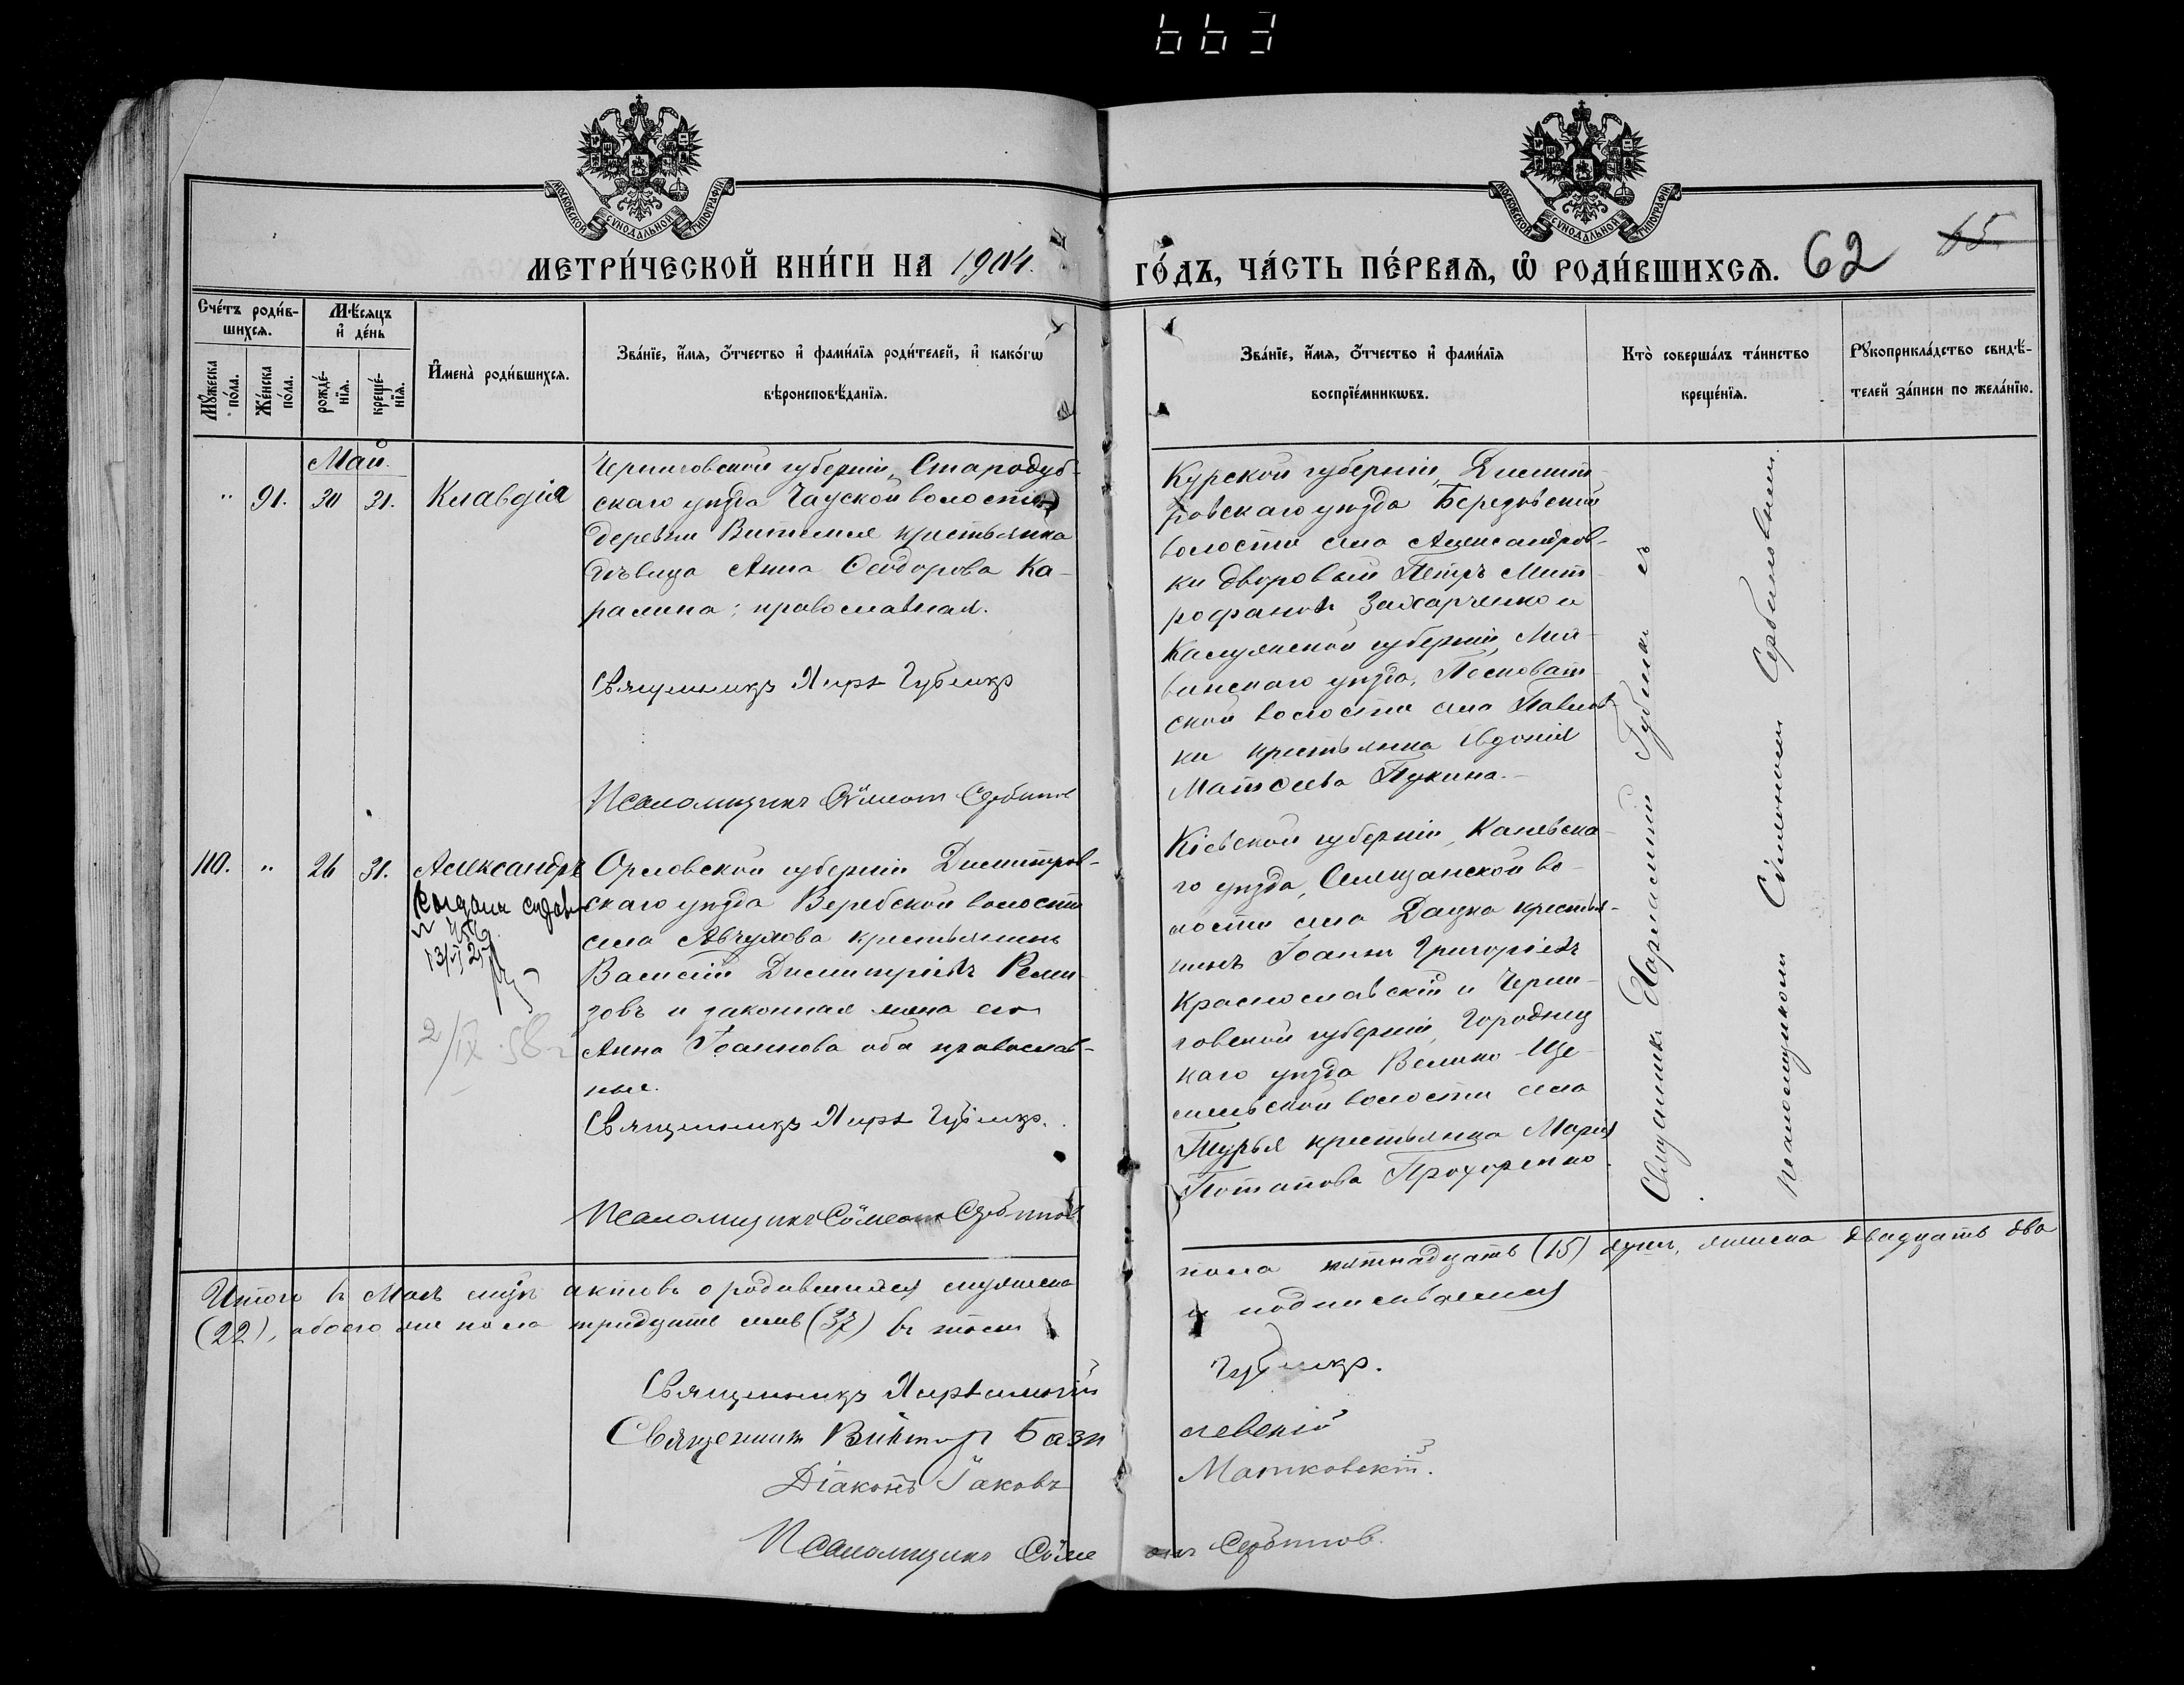 663
МОСКОВСКОЙ СѴНОДАЛЬНОЙ ТИПОГРАФІИ
МОСКОВСКОЙ СѴНОДАЛЬНОЙ ТИПОГРАФІИ
МЕТРИ́ЧЕСКОЙ КНИ́ГИ НА 1904.
ГО́ДЪ, ЧА́СТЬ ПЕ́РВАѦ, Ѡ҆ РОДИ́ВШИХСѦ. 62 65
Сче́тъ роди́в-
шихсѧ.
Мꙋ́жеска по́ла.
Же́нска по́ла.
Мѣ́сѧцъ
и҆ де́нь
рожде́-
нїѧ.
креще́-
нїѧ.
И҆мена̀ роди́вшихсѧ.
Зва́нїе, и҆́мѧ, ѻ҆́тчество и҆ фами́лїѧ роди́телей, и҆ како́гѡ
вѣроисповѣ́данїѧ.
Зва́нїе, и҆́мѧ, ѻ҆́тчество и҆ фами́лїѧ
воспрїе́мникѡвъ.
Кто̀ соверша́лъ та́инство
креще́нїѧ.
Рꙋкоприкла́дство свидѣ́-
телей за́писи по жела́нїю.
Май.
" 91. 30 31. Клавдія
Черниговской губерніи, Стародуб-
скаго уѣзда Чауской волости
деревни Витемля крестьянка
дѣвица Анна Ѳеодорова Ка-
ралина; православная.
Священникъ Харл Губчикъ
Псаломщикъ Сѵмеон Сербинов
Курской губерніи, Димит-
ровскаго уѣзда Березовской
волости села Александров-
ки дворовый Петръ Мит-
рофановъ Захарченко и
Калужской губерніи,
уѣзда, Песковат-
ской волости села Павлов-
ки крестьянка Евдокія
Матѳеева Пукина.
110. " 26 31. Александръ
13/VI 25
2/IX 58 г
Орловской губерніи Димитров-
скаго уѣзда Веребской волости
села Авчухова крестьянинъ
Василій Димитріевъ Реми-
зовъ и законная жена его
Анна Іоаннова оба православ-
ные.
Священникъ Харл Губчикъ.
Псаломщикъ Сѵмеонъ Сербинов
Кіевской губерніи, Каневска-
го уѣзда, во-
лости села Дацка крестья-
нинъ Іоаннъ Григоріевъ
Краснославскій и Черни-
говской губерніи, Городниц
каго уѣзда Велико-Ще-
мельской волости села
Турья крестьянка Марія
Потапова Прохоренко.
Священникъ Харлампій Губчикъ съ
псаломщикомъ Сѵмеономъ Сербиновымъ.
Итого въ Маѣ мѣс. актовъ о родившихся мужеска
пола пятнадцать (15) душъ, женска двадцать два
(22), обоего же пола тридцать семь (37) въ томъ
и подписываемся
Священникъ Харлампій Губчикъ.
Священникъ Викторъ Базилевскій
Діаконъ Іаковъ Матковскій.
Псаломщикъ Сѵмеонъ Сербинов.